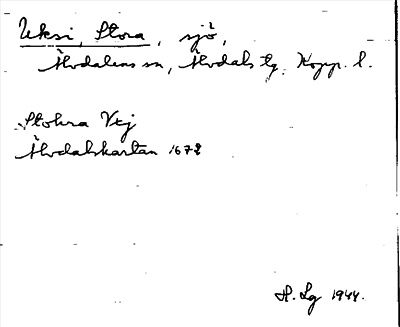 Uksi, Stora, sjö,
Älvdalens sn, Älvdals tg. Kopp. l.
Stohra Vxj
Älvdalskartan 1672
H. Lg 1944.